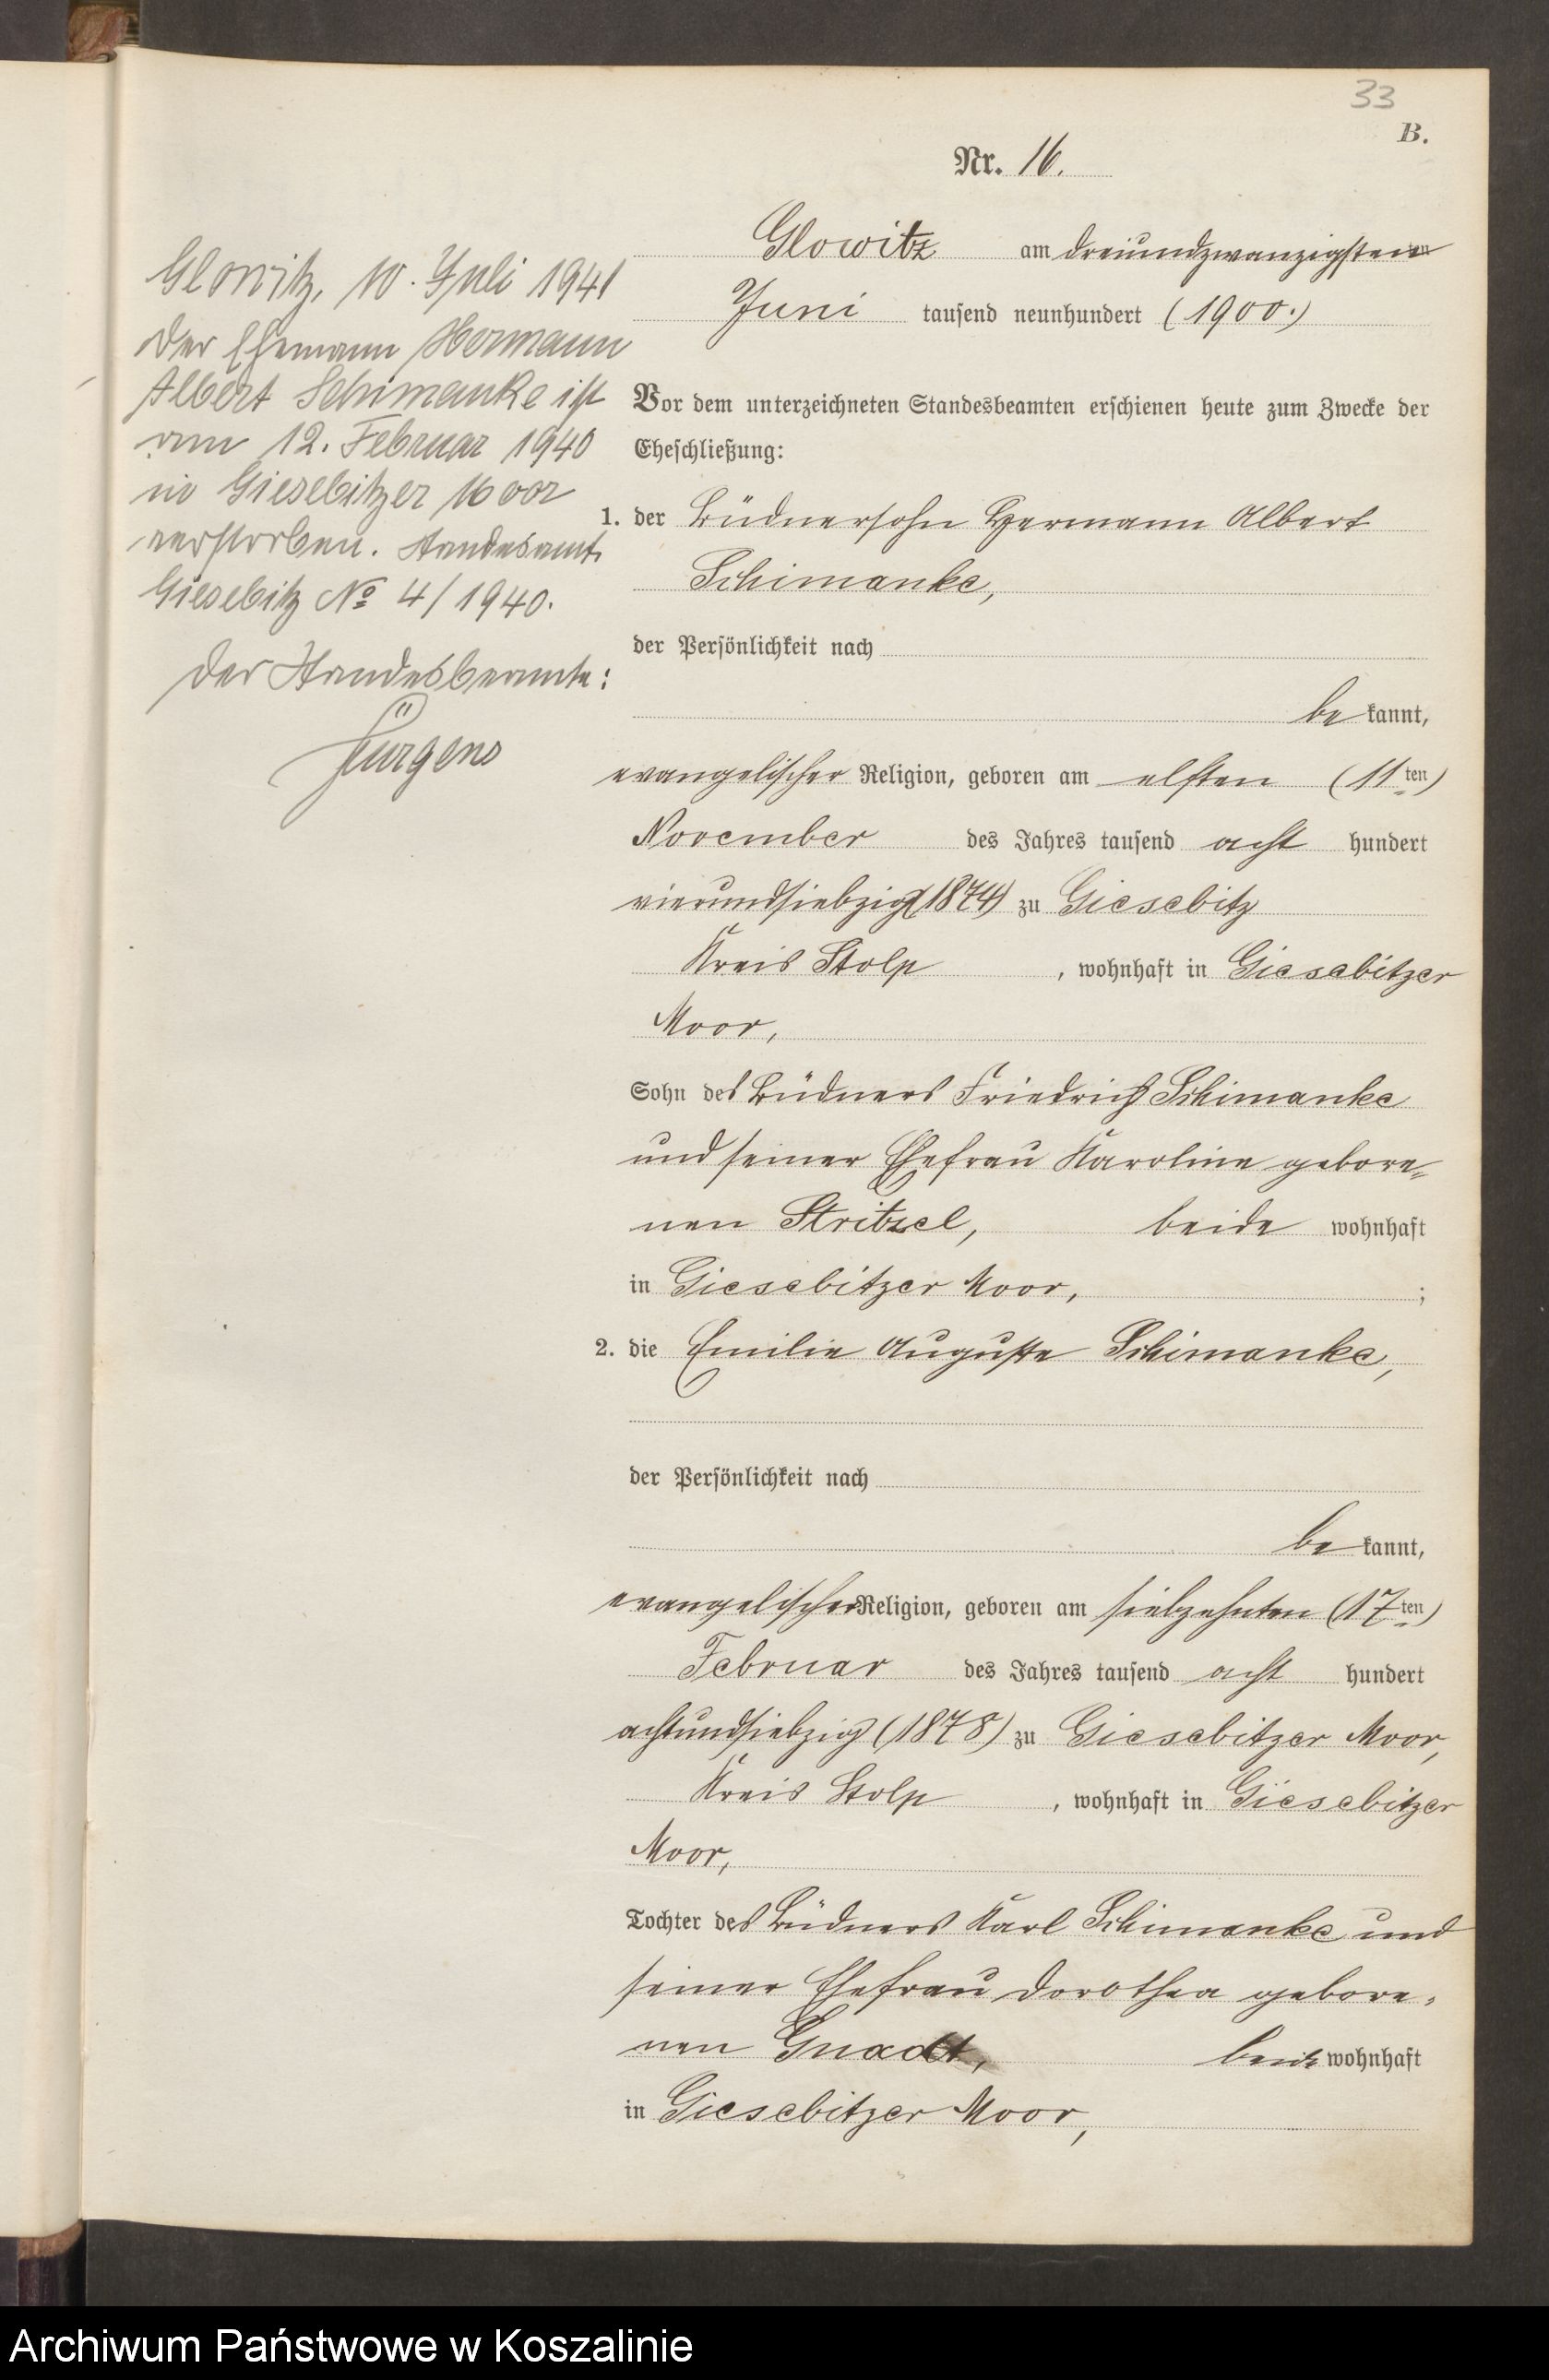 33
B.
Nr. 16.
Glowitz am dreiundzwanzigsten
Juni tausend neunhundert (1900.)
Vor dem unterzeichneten Standesbeamten erschienen heute zum Zwecke der
Eheschließung:
1. der Büdnersohn Hermann Albert
Schimanke,
der Persönlichkeit nach
be kannt,
evangelischer Religion, geboren am elften (11ten)
November des Jahres tausend acht hundert
vierundsiebzig (1874) zu Giesebitz
Kreis Stolp, wohnhaft in Giesebitzer
Moor,
Sohn des Büdners Friedrich Schimanke
und seiner Ehefrau Karoline gebore=
nen Stritzel, beide wohnhaft
in Giesebitzer Moor, ;
2. die Emilie Auguste Schimanke,
der Persönlichkeit nach
be kannt,
evangelischer Religion, geboren am siebzehnten (17ten)
Februar des Jahres tausend acht hundert
achtundsiebzig (1878) zu Giesebitzer Moor,
Kreis Stolp, wohnhaft in Giesebitzer
Moor,
Tochter des Büdners Karl Schimanke und
seiner Ehefrau Dorothea gebore=
nen Gnadt, beide wohnhaft
in Giesebitzer Moor,
Glowitz, 10. Juli 1941
Der Ehemann Hermann
Albert Schimanke ist
am 12. Februar 1940
in Giesebitzer Moor
verstorben. Standesamt
Giesebitz No 4/1940.
Der Standesbeamte:
Jürgens
Archiwum Państwowe w Koszalinie